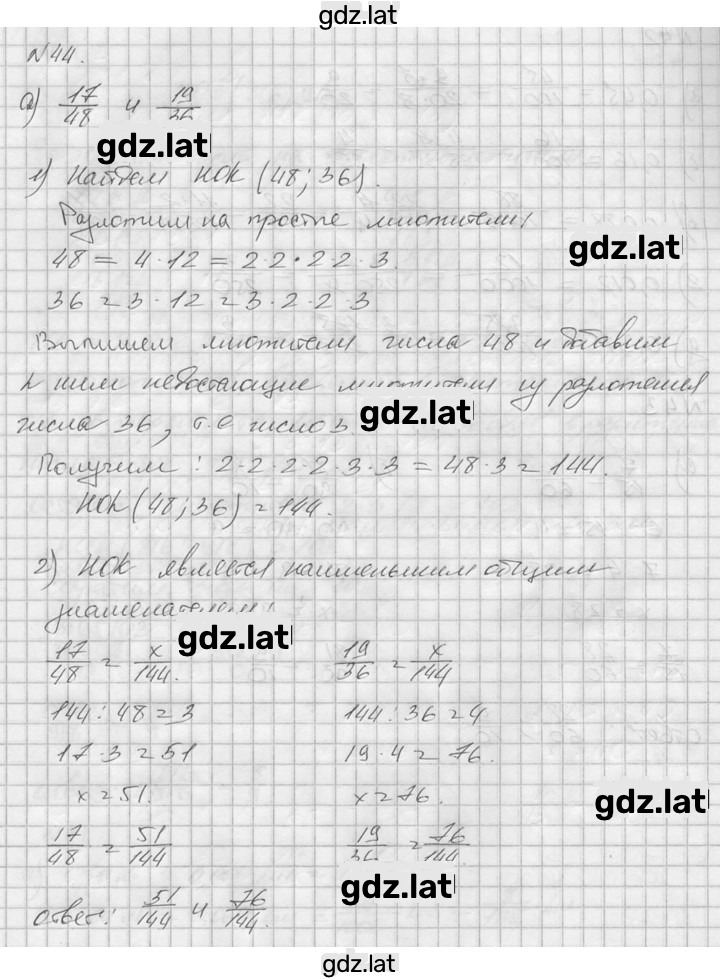 gdz.lat
№44.
а) 17/48 и 19/36
gdz.lat
1) Найдем НОК (48; 36).
Разложим на простые множители
gdz.lat
48 = 4·12 = 2·2·2·2·3.
36 = 3·12 = 3·2·2·3
Выпишем множители числа 48 и добавим
к ним недостающие множители из разложения
gdz.lat
числа 36, т.е число 3
Получим: 2·2·2·2·3·3 = 48·3 = 144.
НОК (48; 36) = 144.
2) НОК является наименьшим общим
знаменателем
gdz.lat
17/48 = x/144. 19/36 = x/144
144 : 48 = 3 144 : 36 = 4
17·3 = 51 19·4 = 76.
x = 51. x = 76.
gdz.lat
17/48 = 51/144 19/36 = 76/144
gdz.lat
ответ: 51/144 и 76/144.
gdz.lat